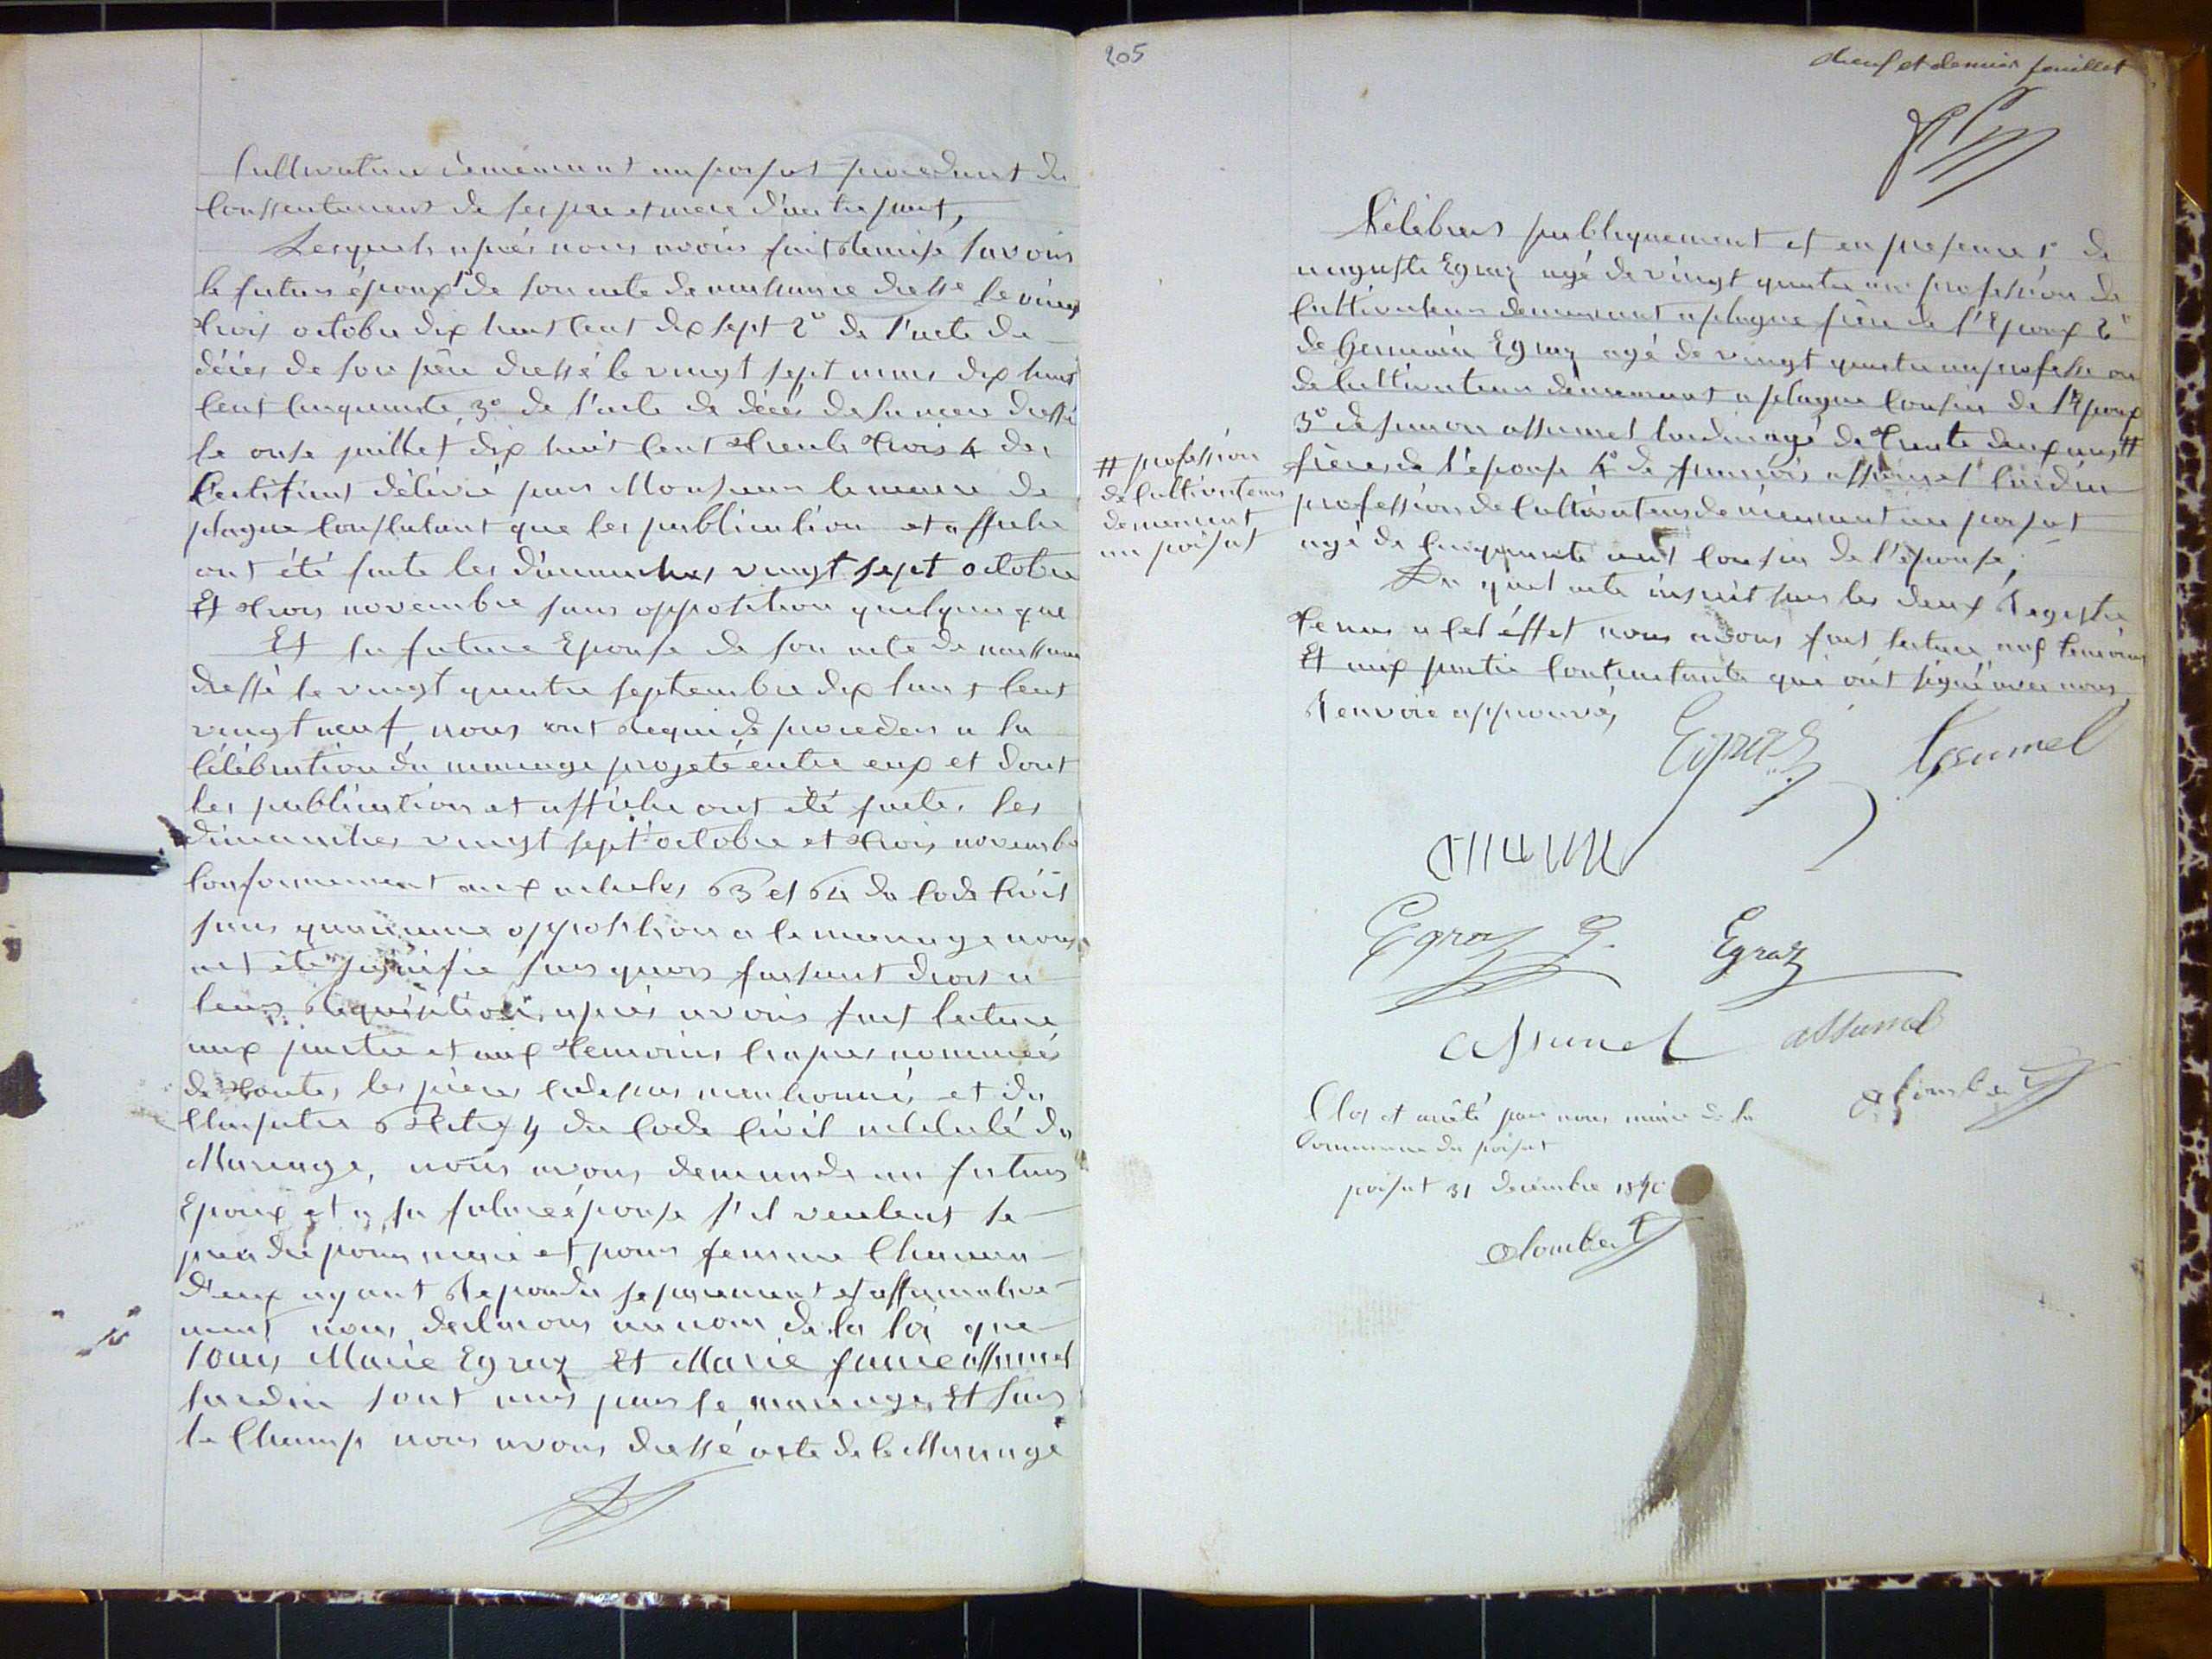 Cultivatrice demeurant au poisat procedant du
Conssentement de ses pere et mere d'autre part,
Lesquels après nous avoir fait remise savoir
le futur époux 1° de son acte de naissance dressé le vingt
trois octobre dix huit cent dix sept 2° de l'acte de
décès de son père dressé le vingt sept mars dix huit
cent cinquante, 3° de l'acte de décès de sa mere dressé
le onse juillet dix huit cent trente trois 4 des
Certificat délivré par Monsieur le maire de
plagne constatant que les publication et affiche
ont été faite les dimanches vingt sept octobre
Et trois novembre sans opposition quelquonque
Et la future Epouse de son acte de naissance
dressé le vingt quatre septembre dix huit cent
vingt neuf nous ont requi de proceder a la
Célébration du mariage projeté entre eux et dont
les publication et affiche ont été faites les
dimanches vingt sept octobre et trois novembre
Conformement aux articles 63 et 64 du Code Civil
sans qu'aucune opposition a le mariage nous
ait été signifie sur quoi faisant droit a
leurs réquisition, après avoir fait lecture
aux partie et aux temoins ci après nommés
de toutes les pièces ci dessus mentionnés et du
Chapitre 6 titre 4 du Code Civil intitulé du
Mariage, nous avons demande au futur
Epoux et a la future épouse s'il veulent se
prendre pour mari et pour femme Chacun
d'eux ayant Repondu separement et affirmative
ment nous declarons au nom de la loi que
Louis Marie Egraz Et Marie assumel
lurdin sont unis par le mariage, Et sur
le Champ nous avons dressé acte de le Mariage
205
neuf et dernier feuillet
Célébrers publiquement et en presence 1° de
auguste Egraz agé de vingt quatre ans profession de
Cultivateur demeurant a plagne frère de l'Epoux 2°
de Germain Egraz agé de vingt quatre ans profession
de Cultivateur demeurant a plagne Cousin de l'Epoux
3° de simon assumel lurdin agé de trente deux ans #
frère de l'épouse 4° de francois assumel lurdin
profession de Cultivateur demeurant au poisat
agé de Cinquante ans Cousin de l'épouse;
# profession
de Cultivateur
demeurant
au poisat
Du quel acte inscrit sur les deux Registre
tenus a Cet éffet nous avons fait lecture aux temoins
Et aux partie Contractante qui ont signé avec nous
Renvoie approuvé,
Egraz assumel
Egraz G. Egraz
assumel assumel
Clos et arrêté par nous maire de la
Commune du poisat
poisat 31 decembre 1850